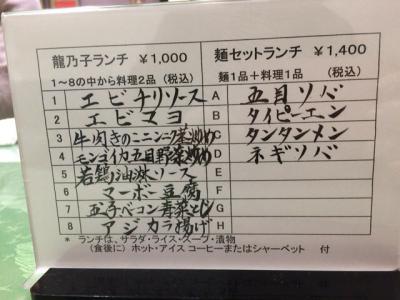 龍乃子ランチ ¥1,000 麺セットランチ ¥1,400
1~8の中から料理2品 (税込) 麺1品+料理1品 (税込)
1 エビチリソース A 五目ソバ
2 エビマヨ B タイピーエン
3 牛肉きのこニンニク芽炒め C タンタンメン
4 モンゴイカ五目野菜炒め D ネギソバ
5 若鶏油淋ソース E
6 マーボー豆腐 F
7 玉子ベーコン青菜とじ G
8 アジカラ揚げ H
* ランチは、サラダ・ライス・スープ・漬物
(食後に) ホット・アイス コーヒーまたはシャーベット 付